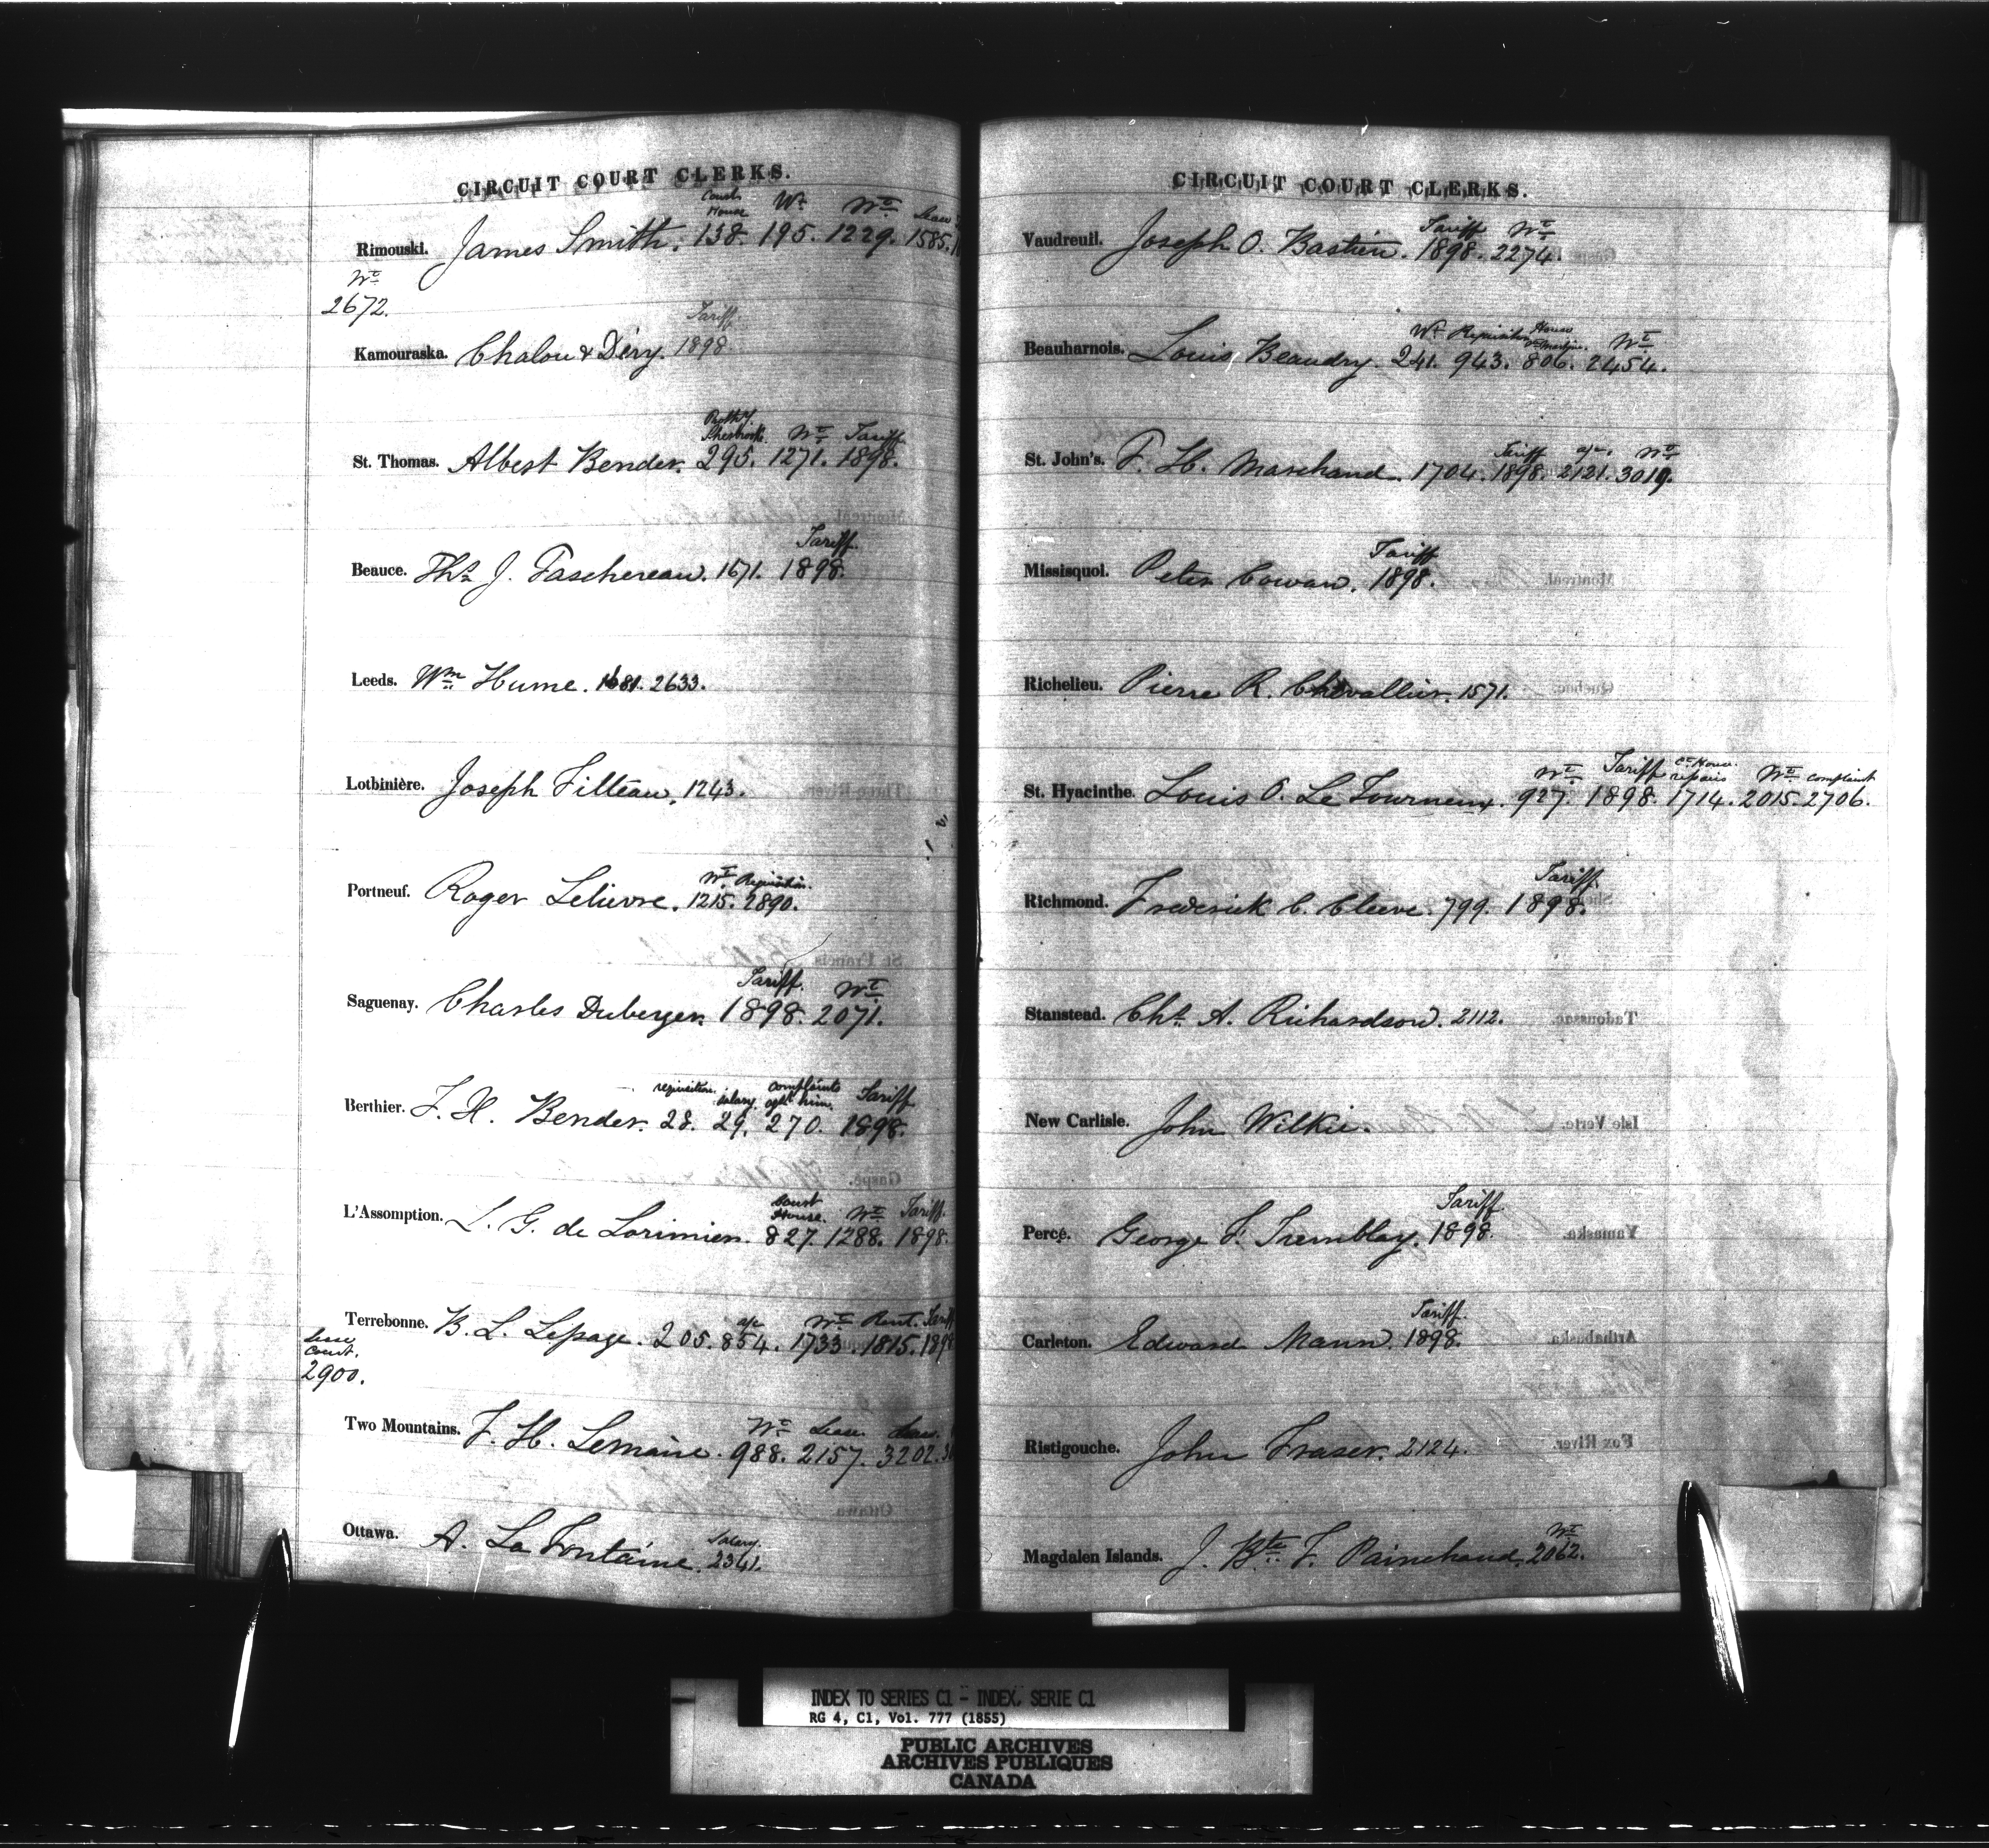 CIRCUIT COURT CLERKS.
Court House Wt Wt Lease
Rimouski. James Smith. 138. 195. 1229. 1585.
Wt
2672.
Tariff
Kamouraska. Chalou & Déry. 1898
Prothy Sherbrooke. Wt Tariff
St. Thomas. Albert Bender. 295. 1271. 1898.
Tariff.
Beauce. Ths J. Taschereau. 1671. 1898.
Leeds. Wm Hume. 1681. 2633.
Lotbinière. Joseph Filteau. 1243.
Wt Requisition.
Portneuf. Roger Lelievre. 1215. 2890.
Tariff. Wt
Saguenay. Charles Duberger. 1898. 2071.
requisition. salary complaints agst him. Tariff
Berthier. F. H. Bender. 28. 29. 270. 1898.
Court House. Wt Tariff.
L'Assomption. L. G. de Lorimier. 827. 1288. 1898.
a/c Wt Rent. Tariff
Terrebonne. B. L. Lepage. 205. 854. 1733. 1815. 1898
court.
2900.
Wt Lease. Lease.
Two Mountains. F. H. Lemaire. 988. 2157. 3202.
Salary.
Ottawa. A. La Fontaine. 2341.
CIRCUIT COURT CLERKS.
Tariff Wt
Vaudreuil. Joseph O. Bastien. 1898. 2274.
Wt Requisition House Wt
Beauharnois. Louis Beaudry. 241. 943. 806. 2454.
Tariff a/c. Wt
St. John's. F. H. Marchand. 1704. 1898. 2121. 3019.
Tariff
Missisquoi. Peter Cowan. 1898.
Richelieu. Pierre R. Chevallier. 1571.
Wt Tariff Ct House repairs Wt complaint
St. Hyacinthe. Louis O. LeTourneux. 927. 1898. 1714. 2015. 2706.
Tariff
Richmond. Frederick C. Cleeve. 799. 1898.
Stanstead. Chs A. Richardson. 2112.
New Carlisle. John Wilkie.
Tariff
Percé. George F. Tremblay. 1898.
Tariff.
Carleton. Edward Mann. 1898.
Ristigouche. John Fraser. 2124.
Wt
Magdalen Islands. J. Bte F. Painchaud. 2062.
INDEX TO SERIES C1 - INDEX, SERIE C1
RG 4, C1, Vol. 777 (1855)
PUBLIC ARCHIVES
ARCHIVES PUBLIQUES
CANADA